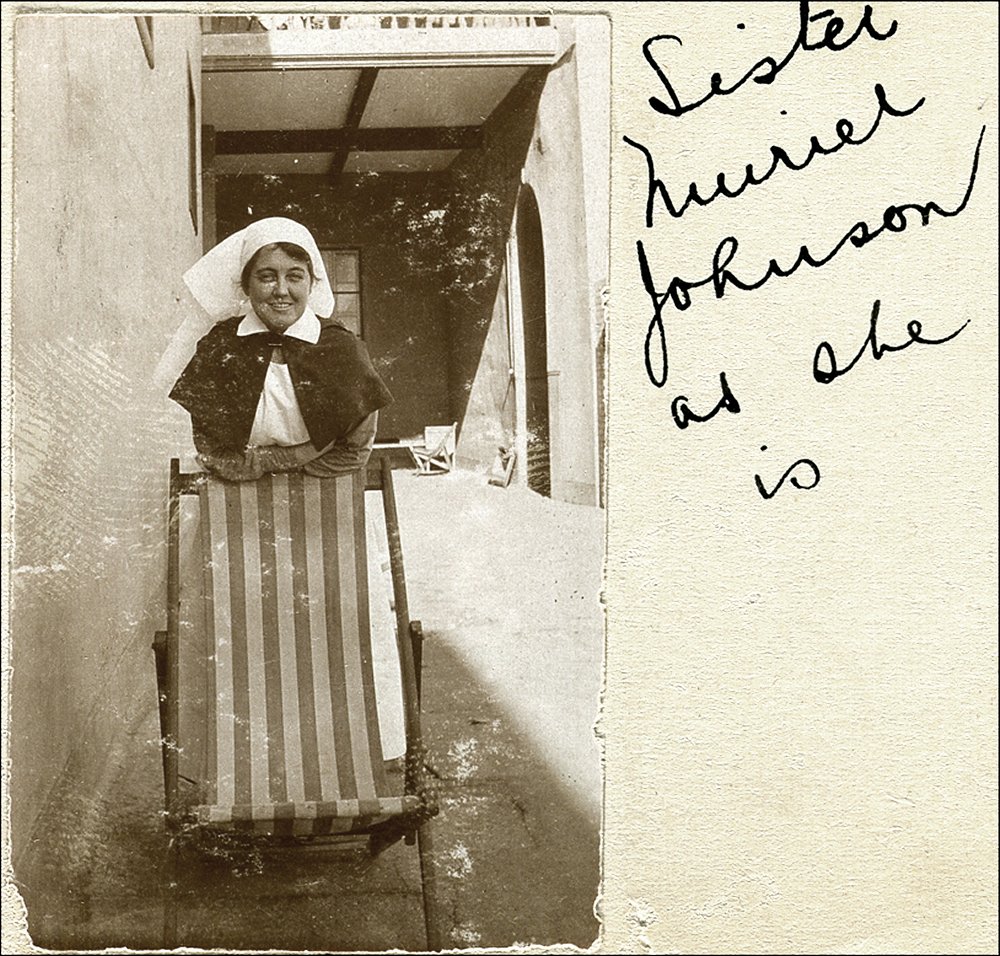 Sister
Muriel
Johnson
as she
is